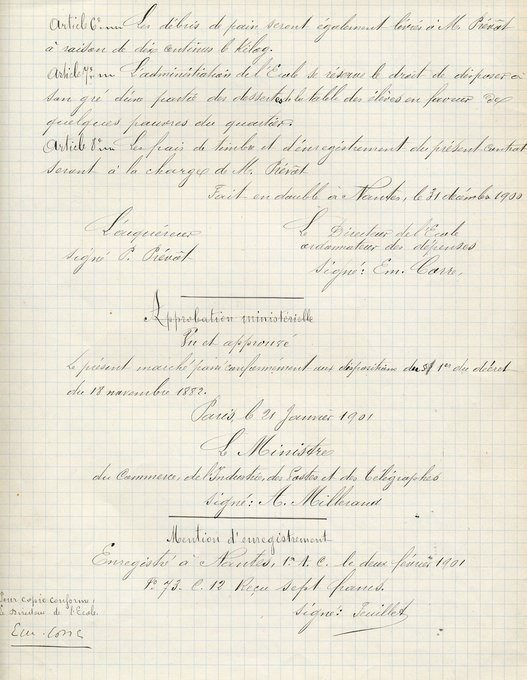 Article 6e. Les débris de pain seront également livrés à M. Prévôt
à raison de dix centimes le kilog.
Article 7e. L'administration de l'Ecole se réserve le droit de disposer à
son gré d'une partie des dessertes de la table des élèves en faveur de
quelques pauvres du quartier.
Article 8e. Les frais de timbre et d'enregistrement du présent contrat
seront à la charge de M. Prévôt.
Fait en double à Nantes, le 31 décembre 1900
L'acquéreur
signé P. Prévôt
Le Directeur de l'Ecole
ordonnateur des dépenses
signé: Em. Corre.
Approbation ministérielle
Vu et approuvé
Le présent marché passé conformément aux dispositions du § 1er du décret
du 18 novembre 1882.
Paris, le 21 Janvier 1901
Le Ministre
du Commerce, de l'Industrie, des Postes et des Télégraphes
signé: A. Millerand
Mention d'enregistrement
Enregistré à Nantes, 1er A. C. le deux février 1901
Fo 73. C. 12 Reçu sept francs.
signé:
Pour copie conforme,
Le Directeur de l'Ecole.
Em. Corre